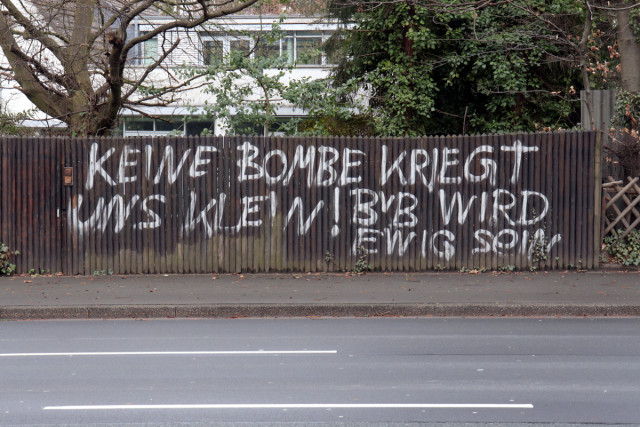 KEINE BOMBE KRIEGT
UNS KLEIN! BVB WIRD
EWIG SEIN